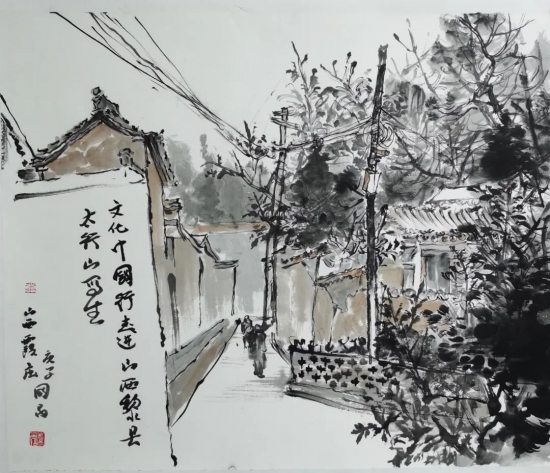 文化中國行走进山西黎县
太行山写生
山西霞庄
庚子